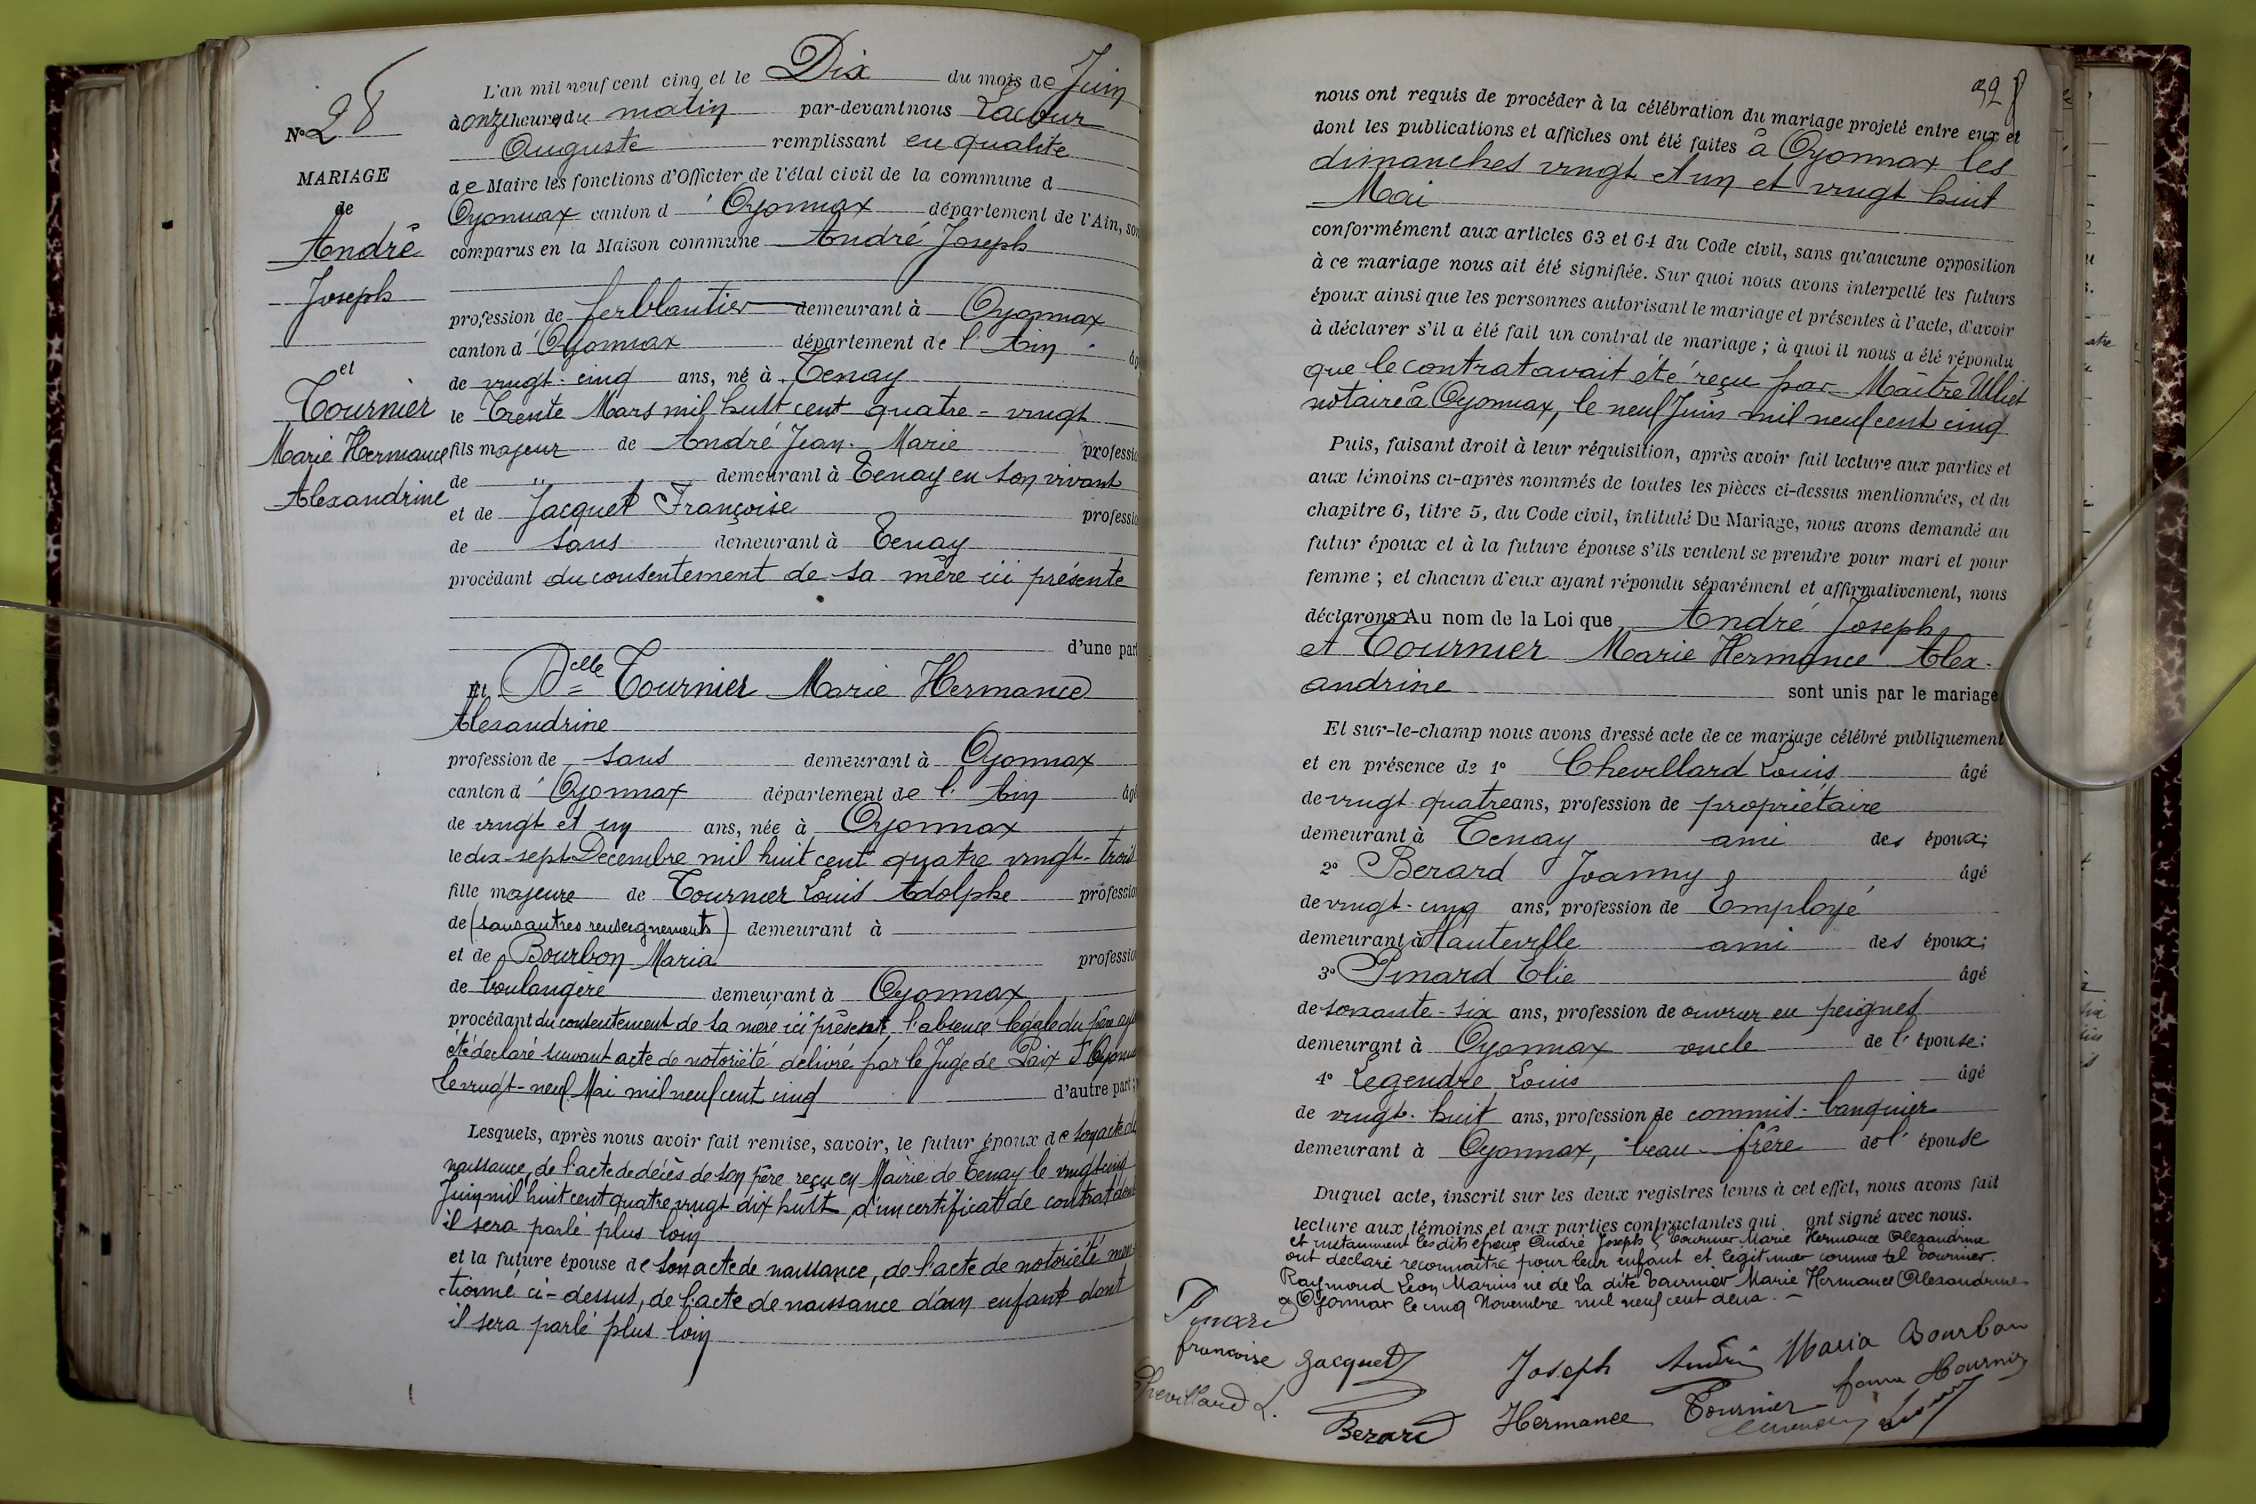 N° 28
MARIAGE
de
André
Joseph
et
Tournier
Marie Hermance
Alexandrine
L'an mil neuf cent cinq et le Dix du mois de Juin
à onze heures du matin par-devant nous Lacour
Auguste remplissant en qualité
de Maire les fonctions d'Officier de l'état civil de la commune d
Oyonnax canton d'Oyonnax département de l'Ain, son
comparus en la Maison commune André Joseph
profession de ferblantier demeurant à Oyonnax
canton d'Oyonnax département de l'Ain âg
de vingt-cinq ans, né à Tenay
le Trente Mars mil huit cent quatre-vingt
fils majeur de André Jean-Marie professio
de " demeurant à Tenay en son vivant
et de Jacquet Françoise professio
de sans demeurant à Tenay
procédant du consentement de sa mère ici présente
d'une part
Et Delle Tournier Marie Hermance
Alexandrine
profession de sans demeurant à Oyonnax
canton d'Oyonnax département de l'Ain âgé
de vingt et un ans, née à Oyonnax
le dix-sept Décembre mil huit cent quatre vingt-trois
fille majeure de Tournier Louis Adolphe profession
de (sans autres renseignements) demeurant à
et de Bourbon Maria professio
de boulangère demeurant à Oyonnax
procédant du consentement de sa mère ici présente, l'absence légale du père ayant
été déclaré suivant acte de notoriété délivré par le Juge de Paix d'Oyonnax
le vingt-neuf Mai mil neuf cent cinq d'autre part ;
Lesquels, après nous avoir fait remise, savoir, le futur époux de son acte de
naissance, de l'acte de décès de son père reçu en Mairie de Tenay le vingt cinq
Juin mil huit cent quatre vingt dix huit, d'un certificat de contrat dont
il sera parlé plus loin
et la future épouse de son acte de naissance, de l'acte de notoriété men-
-tionné ci-dessus, de l'acte de naissance d'un enfant dont
il sera parlé plus loin
328
nous ont requis de procéder à la célébration du mariage projeté entre eux et
dont les publications et affiches ont été faites à Oyonnax les
dimanches vingt et un et vingt huit
Mai
conformément aux articles 63 et 64 du Code civil, sans qu'aucune opposition
à ce mariage nous ait été signifiée. Sur quoi nous avons interpellé les futurs
époux ainsi que les personnes autorisant le mariage et présentes à l'acte, d'avoir
à déclarer s'il a été fait un contrat de mariage ; à quoi il nous a été répondu
que le contrat avait été reçu par Maître Ulliet
notaire à Oyonnax, le neuf Juin mil neuf cent cinq
Puis, faisant droit à leur réquisition, après avoir fait lecture aux parties et
aux témoins ci-après nommés de toutes les pièces ci-dessus mentionnées, et du
chapitre 6, titre 5, du Code civil, intitulé Du Mariage, nous avons demandé au
futur époux et à la future épouse s'ils veulent se prendre pour mari et pour
femme ; et chacun d'eux ayant répondu séparément et affirmativement, nous
déclarons Au nom de la Loi que André Joseph
et Tournier Marie Hermance Alex-
andrine sont unis par le mariage
Et sur-le-champ nous avons dressé acte de ce mariage célébré publiquement
et en présence de 1° Chevillard Louis âgé
de vingt-quatre ans, profession de propriétaire
demeurant à Tenay ami des époux ;
2° Berard Joanny âgé
de vingt-cinq ans, profession de Employé
demeurant à Hauteville ami des époux ;
3° Pinard Elie âgé
de soixante-six ans, profession de ouvrier en peignes
demeurant à Oyonnax oncle de l'épouse ;
4° Legendre Louis âgé
de vingt-huit ans, profession de commis-banquier
demeurant à Oyonnax, beau-frère de l'épouse
Duquel acte, inscrit sur les deux registres tenus à cet effet, nous avons fait
lecture aux témoins et aux parties contractantes qui ont signé avec nous.
et instamment les dits époux André Joseph & Tournier Marie Hermance Alexandrine
ont déclaré reconnaître pour leur enfant et légitimer comme tel Tournier
Raymond Léon Marius né de la dite Tournier Marie Hermance Alexandrine
à Oyonnax le cinq Novembre mil neuf cent deux.
Pinard
françoise Jacquet Joseph André Maria Bourbon
Chevillard L. fame Tournier
Berard Hermance Tournier